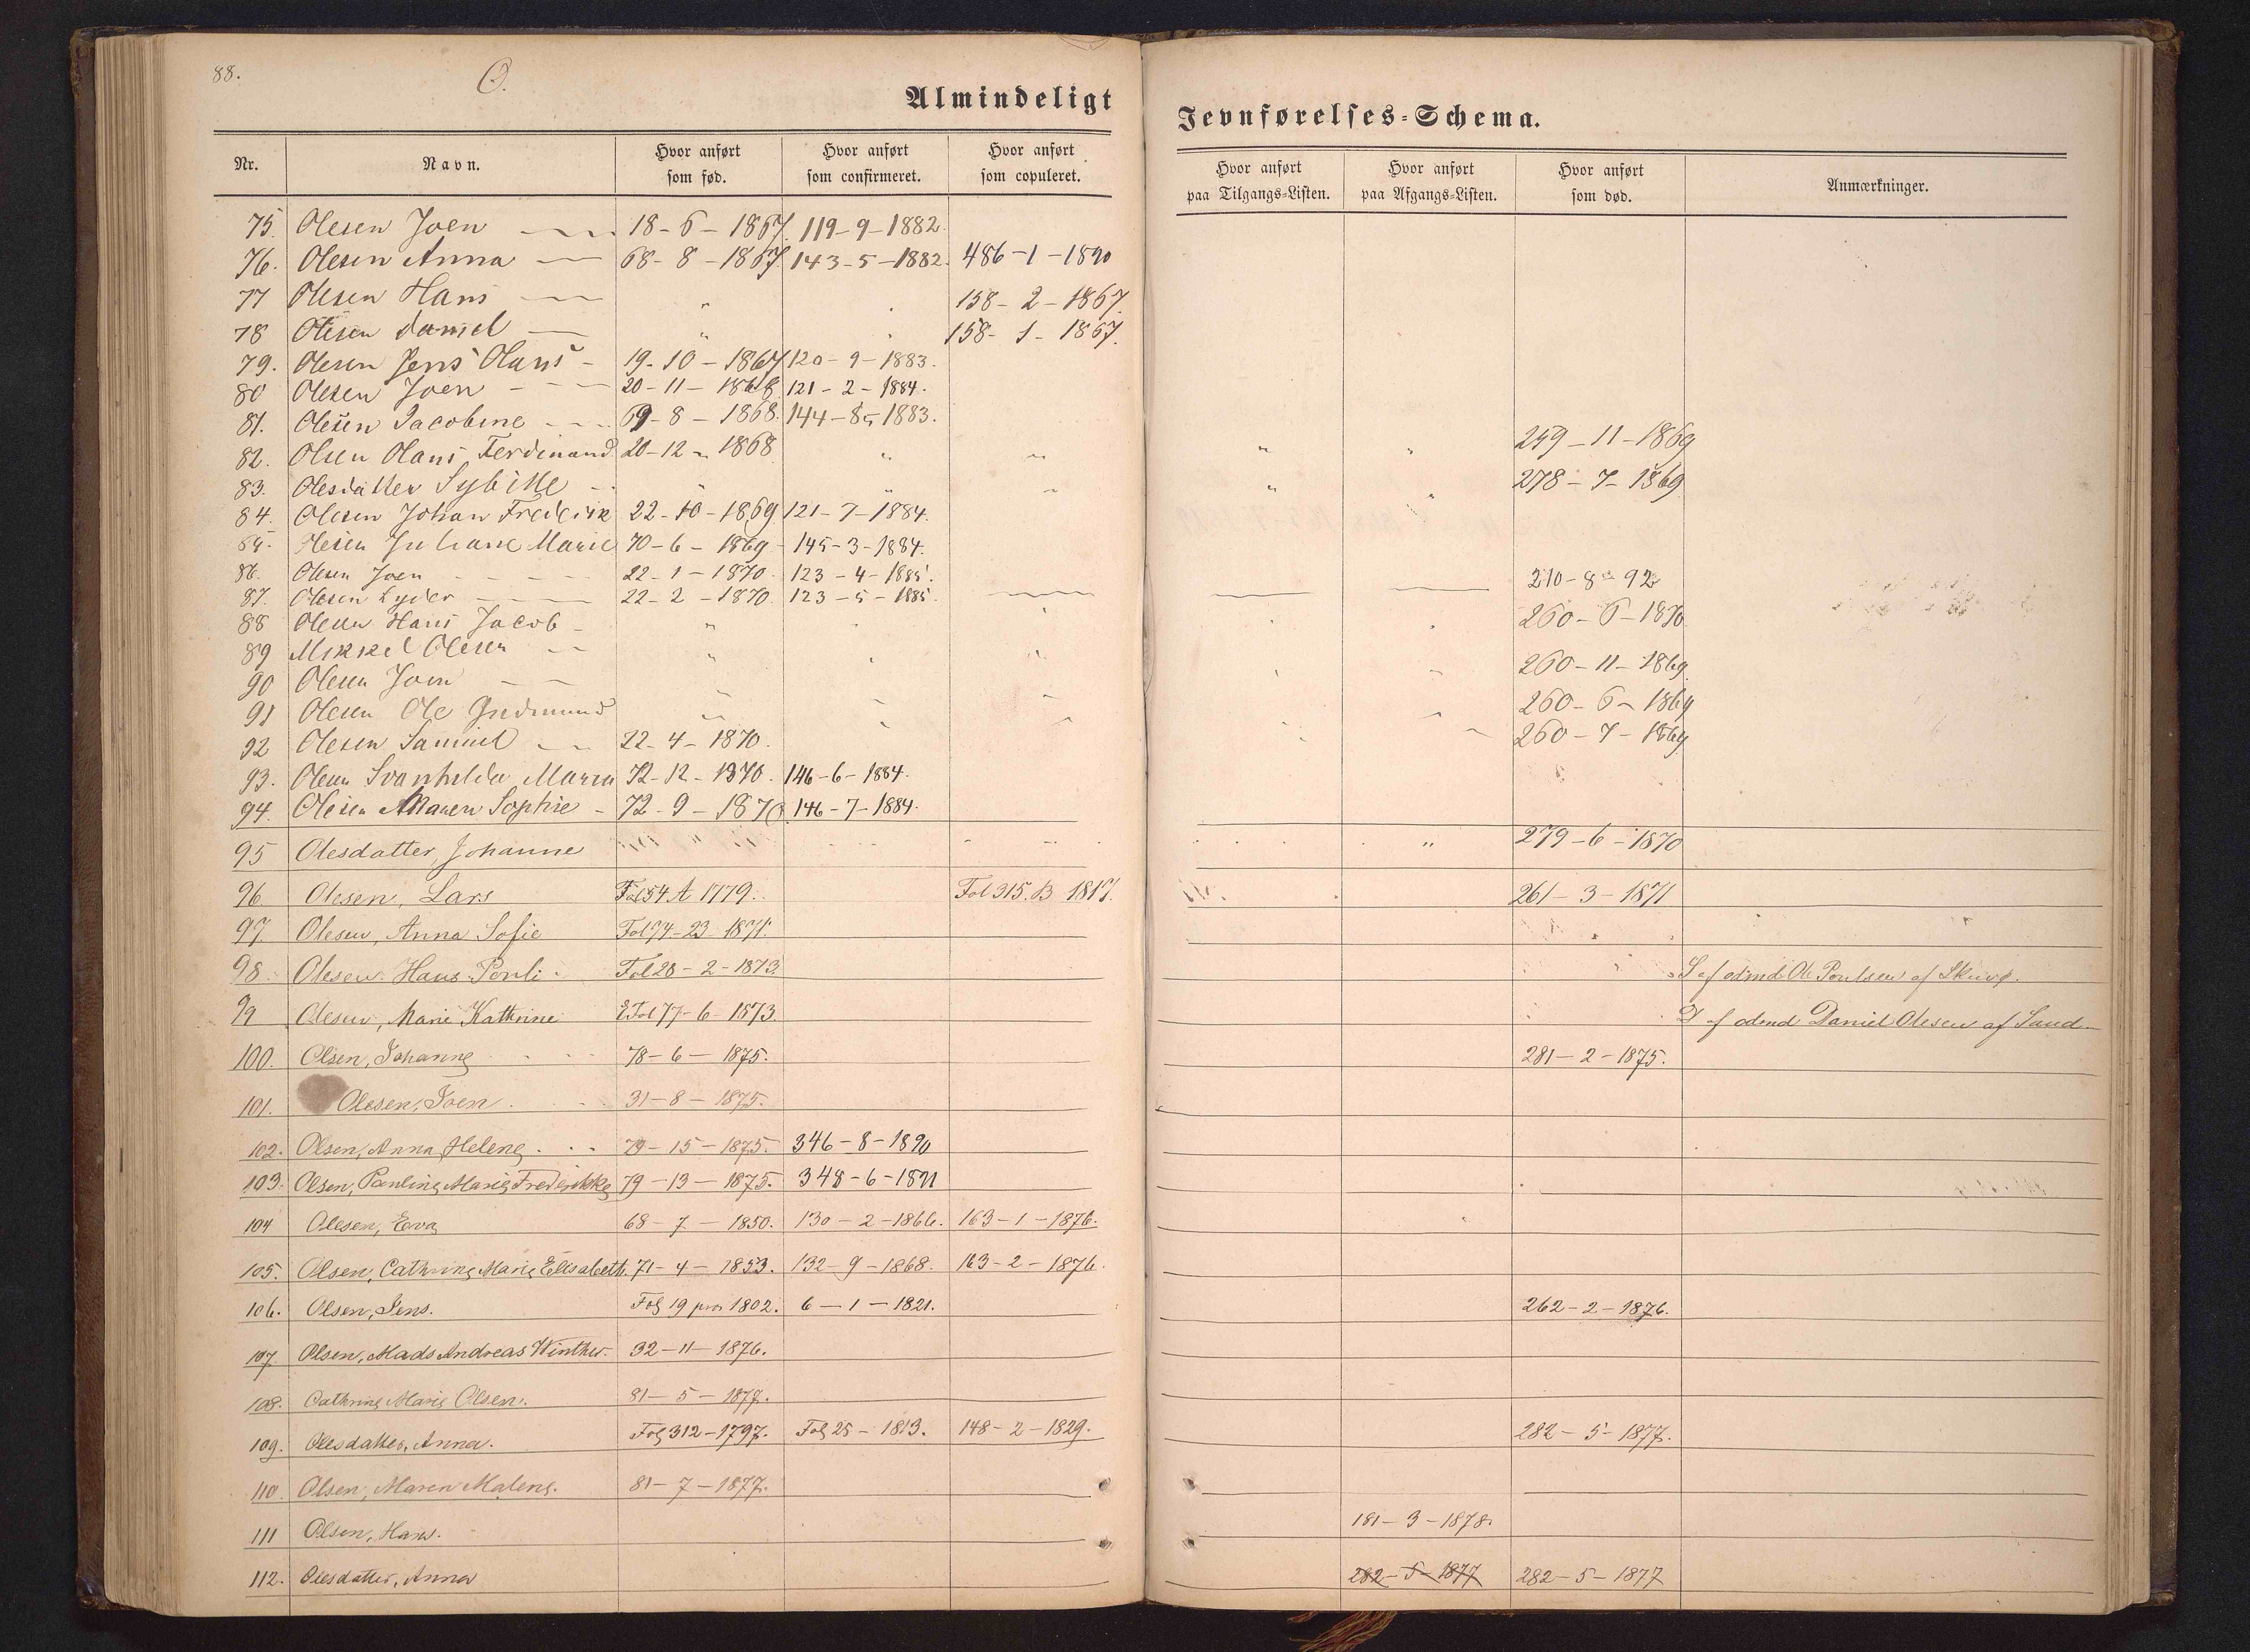 88.
O.
Almindeligt
Jevnførelses-Schema.
Nr. Navn. Hvor anført som fød. Hvor anført som confirmeret. Hvor anført som copuleret. Hvor anført paa Tilgangs-Listen. Hvor anført paa Afgangs-Listen. Hvor anført som død. Anmærkninger.
75. Olesen Joen 18-6-1867. 119-9-1882.
76. Olesen Anna 68-8-1867. 143-5-1882. 486-1-1890
77 Olesen Hans " 158-2-1867.
78 Olesen Daniel " " 158-1-1867.
79. Olesen Jens Hans 19-10-1867 120-9-1883.
80 Olesen Joen 20-11-1868 121-2-1884.
81. Olesen Jacobine 69-8-1868. 144-8-1883.
82. Olsen Hans Ferdinand 20-12-1868 " " " " 259-11-1869
83. Olesdatter Sybille " " " " " 278-7-1869
84. Olesen Johan Frederik 22-10-1869 121-7-1884.
85. Olesen Juliane Marie 70-6-1869 145-3-1884.
86. Olesen Joen 22-1-1870. 123-4-1885. 210-8-92
87. Olesen Lyder 22-2-1870. 123-5-1885.
88 Olesen Hans Jacob " 260-6-1870
89 Mikkel Olesen " 260-11-1869.
90 Olesen Joen " 260-6-1869
91 Olesen Ole Gudmund " 260-7-1869
92 Olesen Samuel 22-4-1870.
93. Olesen Svanhilda Maria 72-12-1870. 146-6-1884.
94. Olesen Maren Sophie 72-9-1870. 146-7-1884.
95 Olesdatter, Johanne " 279-6-1870
96 Olesen, Lars Fol 54 A 1779. Fol 315. B 1817. 261-3-1871
97. Olesen, Anna Sofie Fol 74-23-1871.
98. Olesen. Hans Pouli. Fol 28-2-1873. S. af odmd. Ole Poulsen af Skuvø.
99 Olesen, Marie Kathrine Fol 77-6-1873. D af odmd Daniel Olesen af Sand.
100. Olsen, Johanne 78-6-1875. 281-2-1875.
101. Olesen, Joen 31-8-1875.
102. Olsen, Anna Helene 79-15-1875. 346-8-1890
103. Olsen, Pauline Marie Frederikke 79-13-1875. 348-6-1891
104 Olesen, Eva 68-7-1850. 130-2-1866. 163-1-1876.
105. Olsen, Cathrine Marie Elisabeth. 71-4-1853. 132-9-1868. 163-2-1876.
106. Olsen, Jens. Fol 19 1802. 6-1-1821. 262-2-1876.
107. Olsen, Mads Andreas Winther. 32-11-1876.
108. Cathrine Marie Olsen. 81-5-1877.
109. Olesdatter, Anna. Fol 312-1797. Fol 25-1813. 148-2-1829. 282-5-1877.
110. Olsen, Maren Malene. 81-7-1877.
111 Olsen, Hans. 181-3-1878.
112. Olesdatter, Anna 282-5-1877 282-5-1877